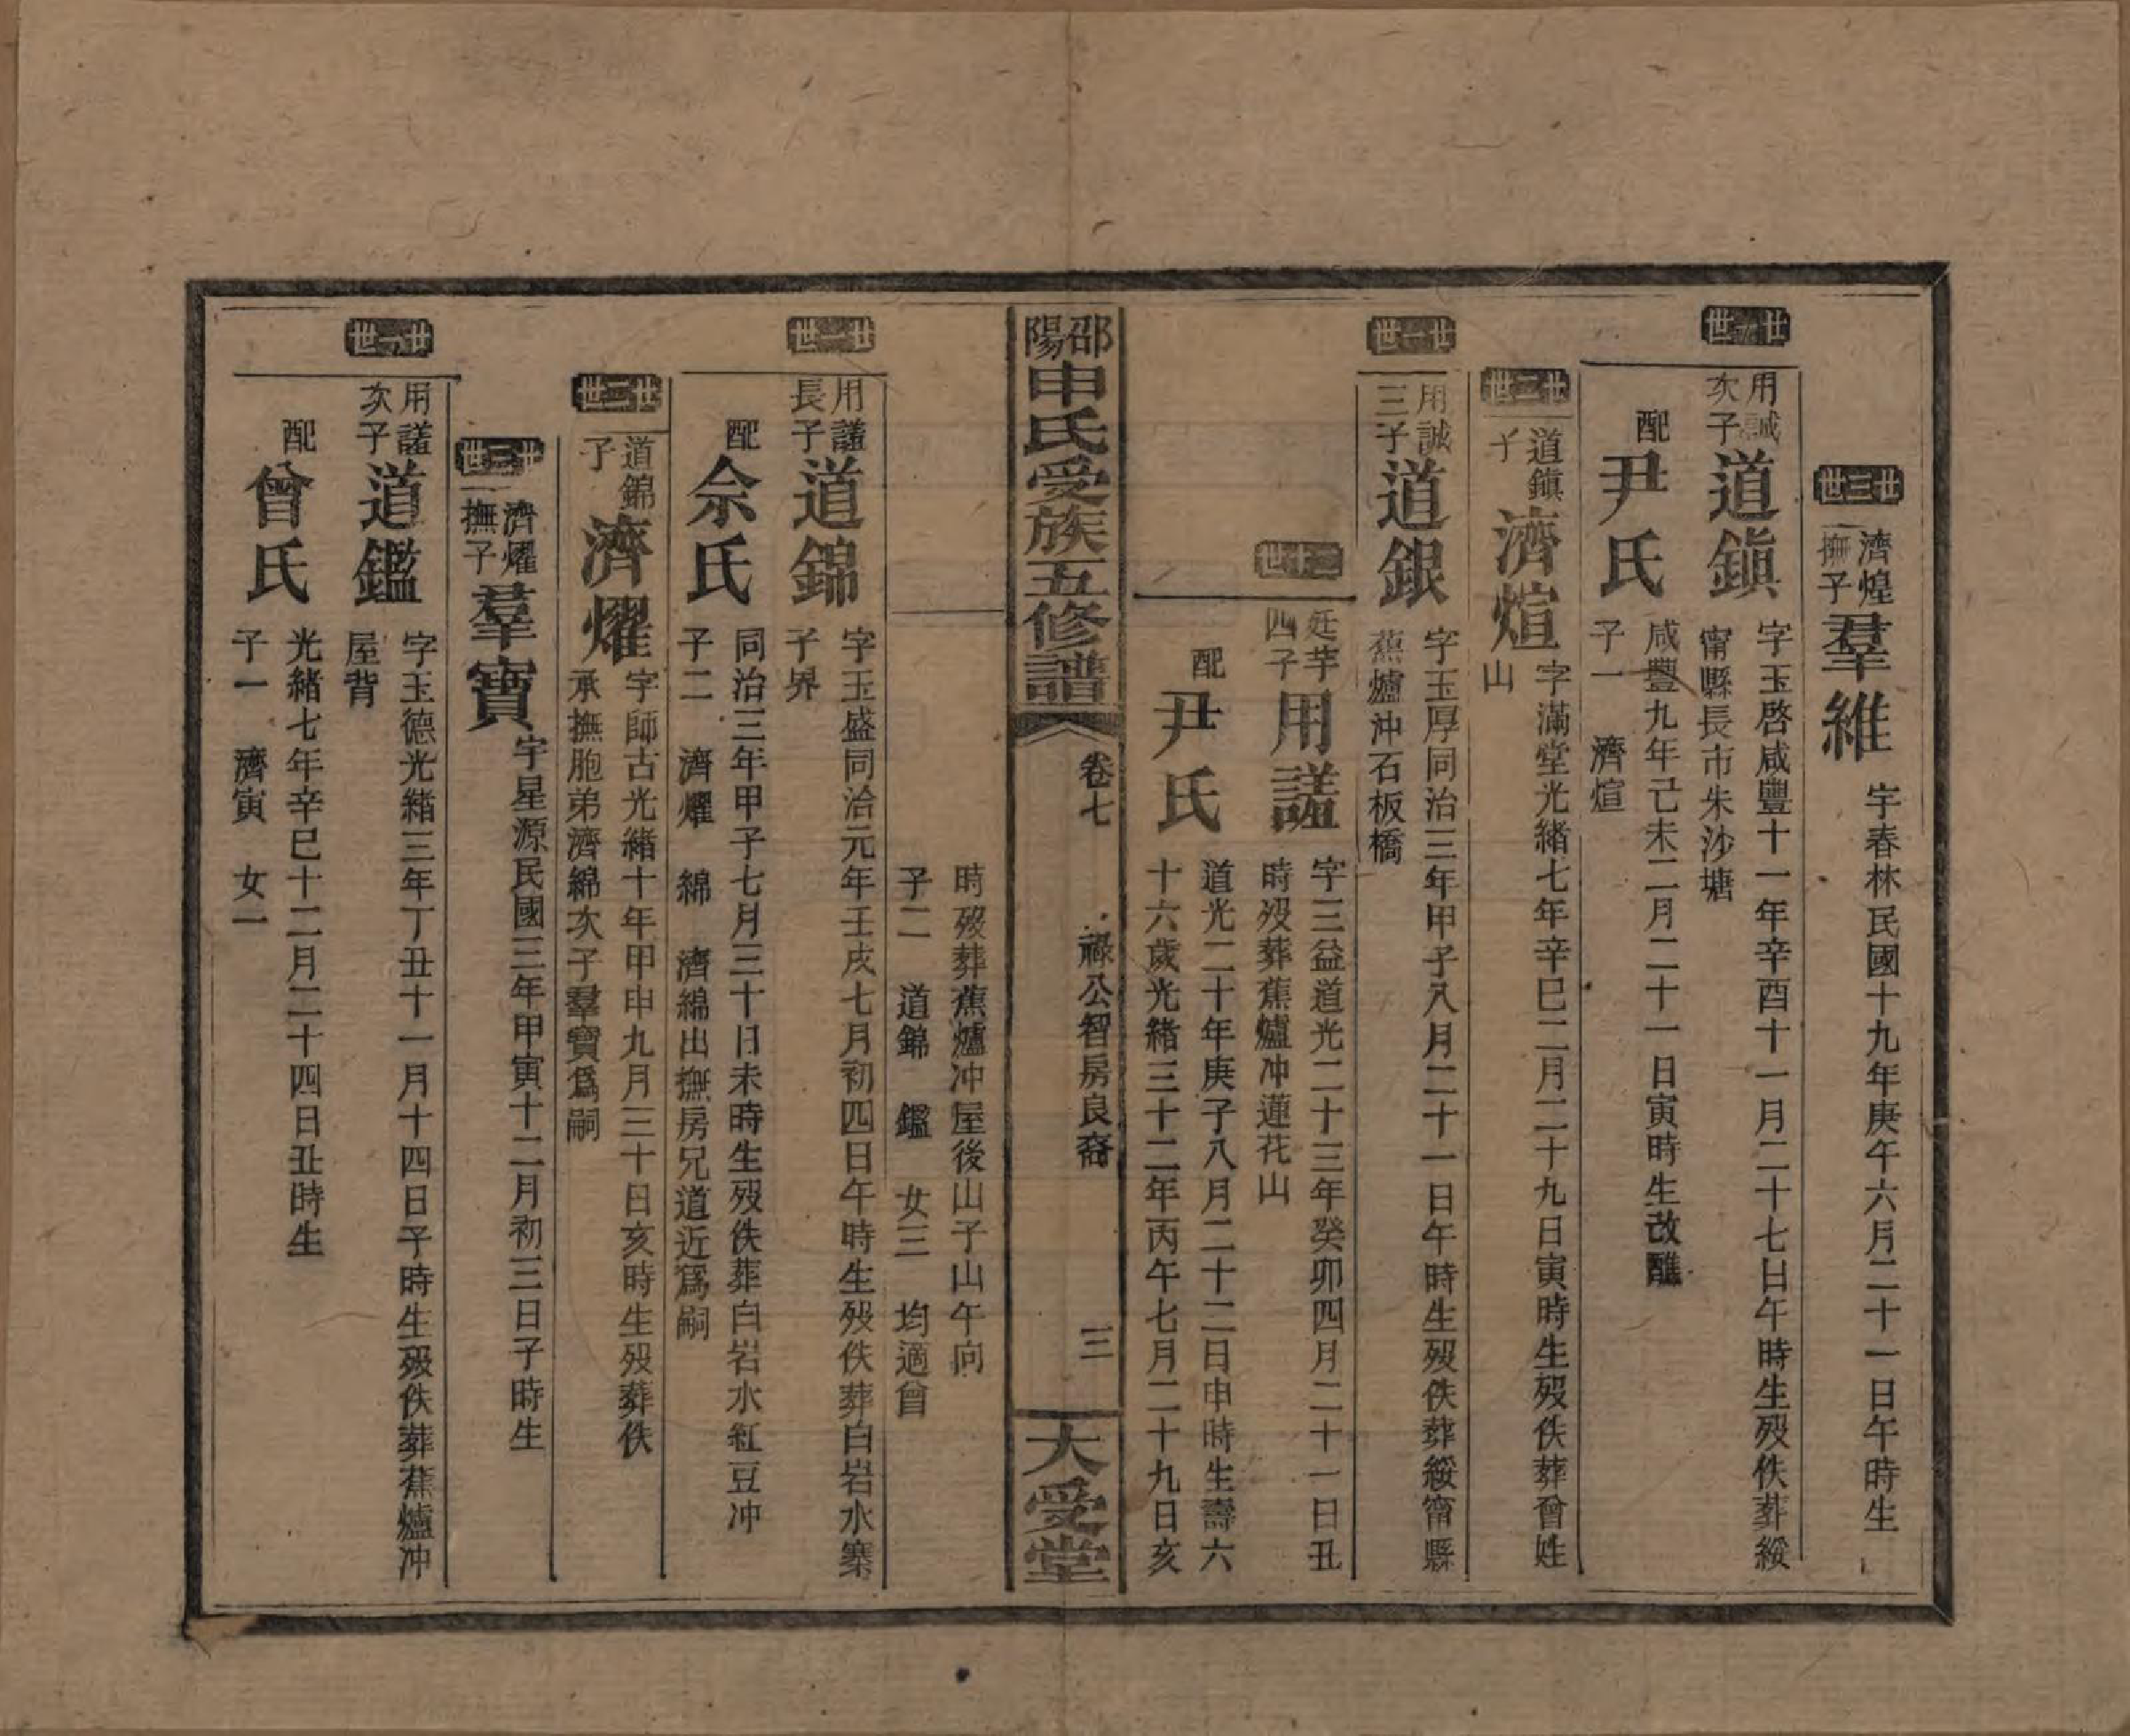 世三廿
濟煌
撫子
羣維
字春林民國十九年庚午六月二十一日午時生
世一廿
用誠
次子
道鎭
字玉啓咸豐十一年辛酉十一月二十七日午時生歿佚葬綏
甯縣長市朱沙塘
配
尹氏
咸豐九年己未二月二十一日寅時生改醮
子一　濟煊
世二廿
道鎭
子
濟煊
字滿堂光緒七年辛巳二月二十九日寅時生歿佚葬曾姓
山
世一廿
用誠
三子
道銀
字玉厚同治三年甲子八月二十一日午時生歿佚葬綏甯縣
蕉爐沖石板橋
世十二
廷芋
四子
用謹
字三益道光二十三年癸卯四月二十一日丑
時歿葬蕉爐冲蓮花山
配
尹氏
道光二十年庚子八月二十二日申時生壽六
十六歲光緒三十二年丙午七月二十九日亥
邵陽申氏受族五修譜
卷七
祿公智房良裔
三
大受堂
時歿葬蕉爐冲屋後山子山午向
子二　道錦　鑑　女三　均適曾
世一廿
用謹
長子
道錦
字玉盛同治元年壬戌七月初四日午時生歿佚葬白岩水寨
子界
配
佘氏
同治三年甲子七月三十日未時生歿佚葬白岩水紅豆冲
子二　濟燿　綿　濟綿出撫房兄道近爲嗣
世二廿
道錦
子
濟燿
字師古光緒十年甲申九月三十日亥時生歿葬佚
承撫胞弟濟綿次子羣寶爲嗣
世三廿
濟燿
撫子
羣寶
字星源民國三年甲寅十二月初三日子時生
世一廿
用謹
次子
道鑑
字玉德光緒三年丁丑十一月十四日子時生歿佚葬蕉爐冲
屋背
配
曾氏
光緒七年辛巳十二月二十四日丑時生
子一　濟寅　女一